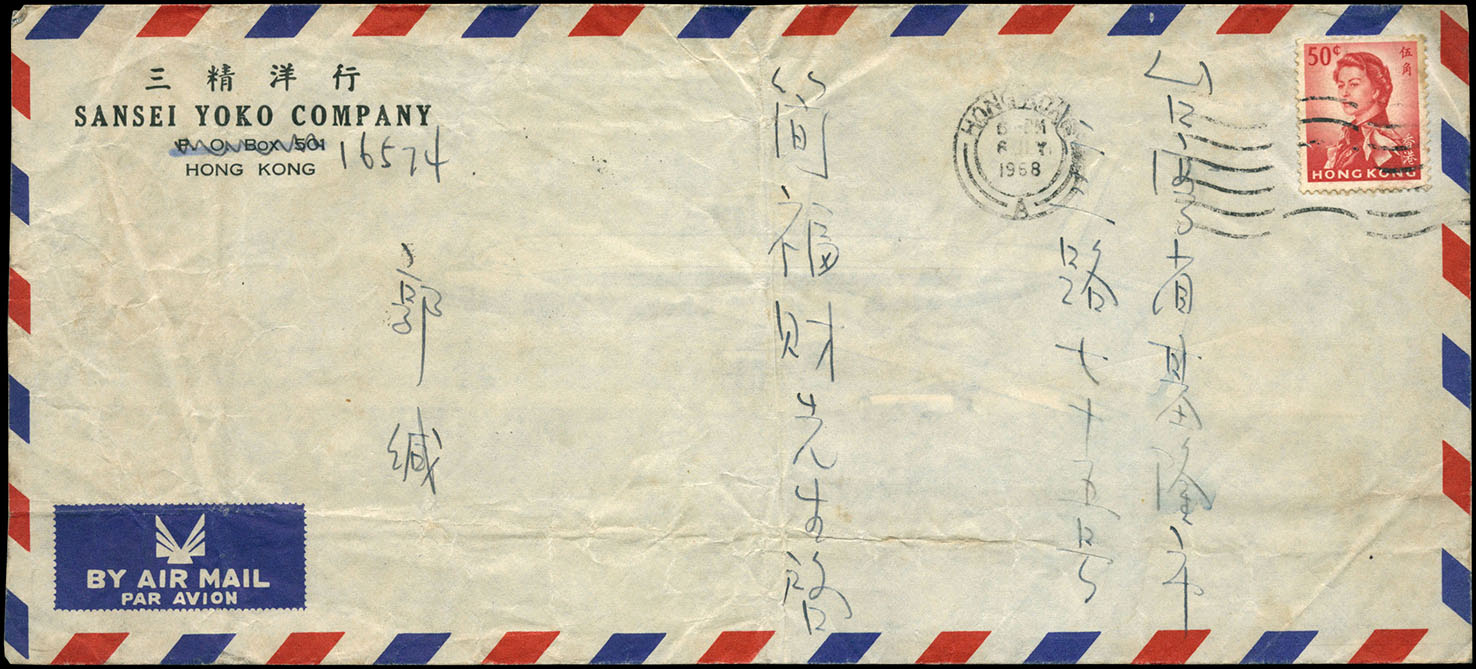 三精洋行
SANSEI YOKO COMPANY
P. O. Box 501 16574
HONG KONG
HONG KONG
6 - PM
6 JLY
1968
A
50¢
伍角
香港
HONG KONG
台湾省基隆市
一路七十五号
简福財先生啟
郭缄
BY AIR MAIL
PAR AVION